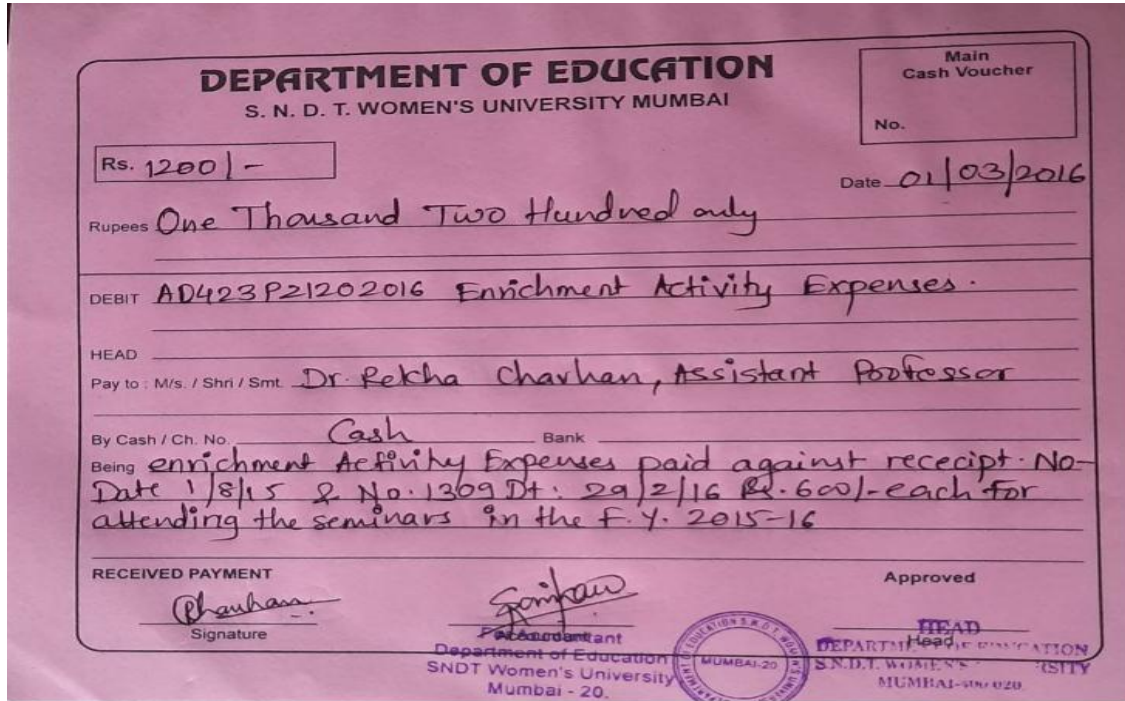 DEPARTMENT OF EDUCATION
S. N. D. T. WOMEN'S UNIVERSITY MUMBAI
Main
Cash Voucher
No.
Rs. 1200/-
Date 01/03/2016
Rupees One Thousand Two Hundred only
DEBIT AD423P21202016 Enrichment Activity Expenses.
HEAD
Pay to : M/s. / Shri / Smt. Dr. Rekha Chavhan, Assistant Professor
By Cash / Ch. No. Cash Bank
Being enrichment Activity Expenses paid against rececipt. No-
Date 1/8/15 & No. 1309 Dt: 29/2/16 Rs. 600/- each for
attending the seminars in the F.Y. 2015-16
RECEIVED PAYMENT
Approved
Chauhan
Signature
Accountant
Department of Education
SNDT Women's University
Mumbai - 20.
MUMBAI-20
HEAD
Head
DEPARTMENT OF EDUCATION
S.N.D.T. WOMEN'S
MUMBAI-400 020.